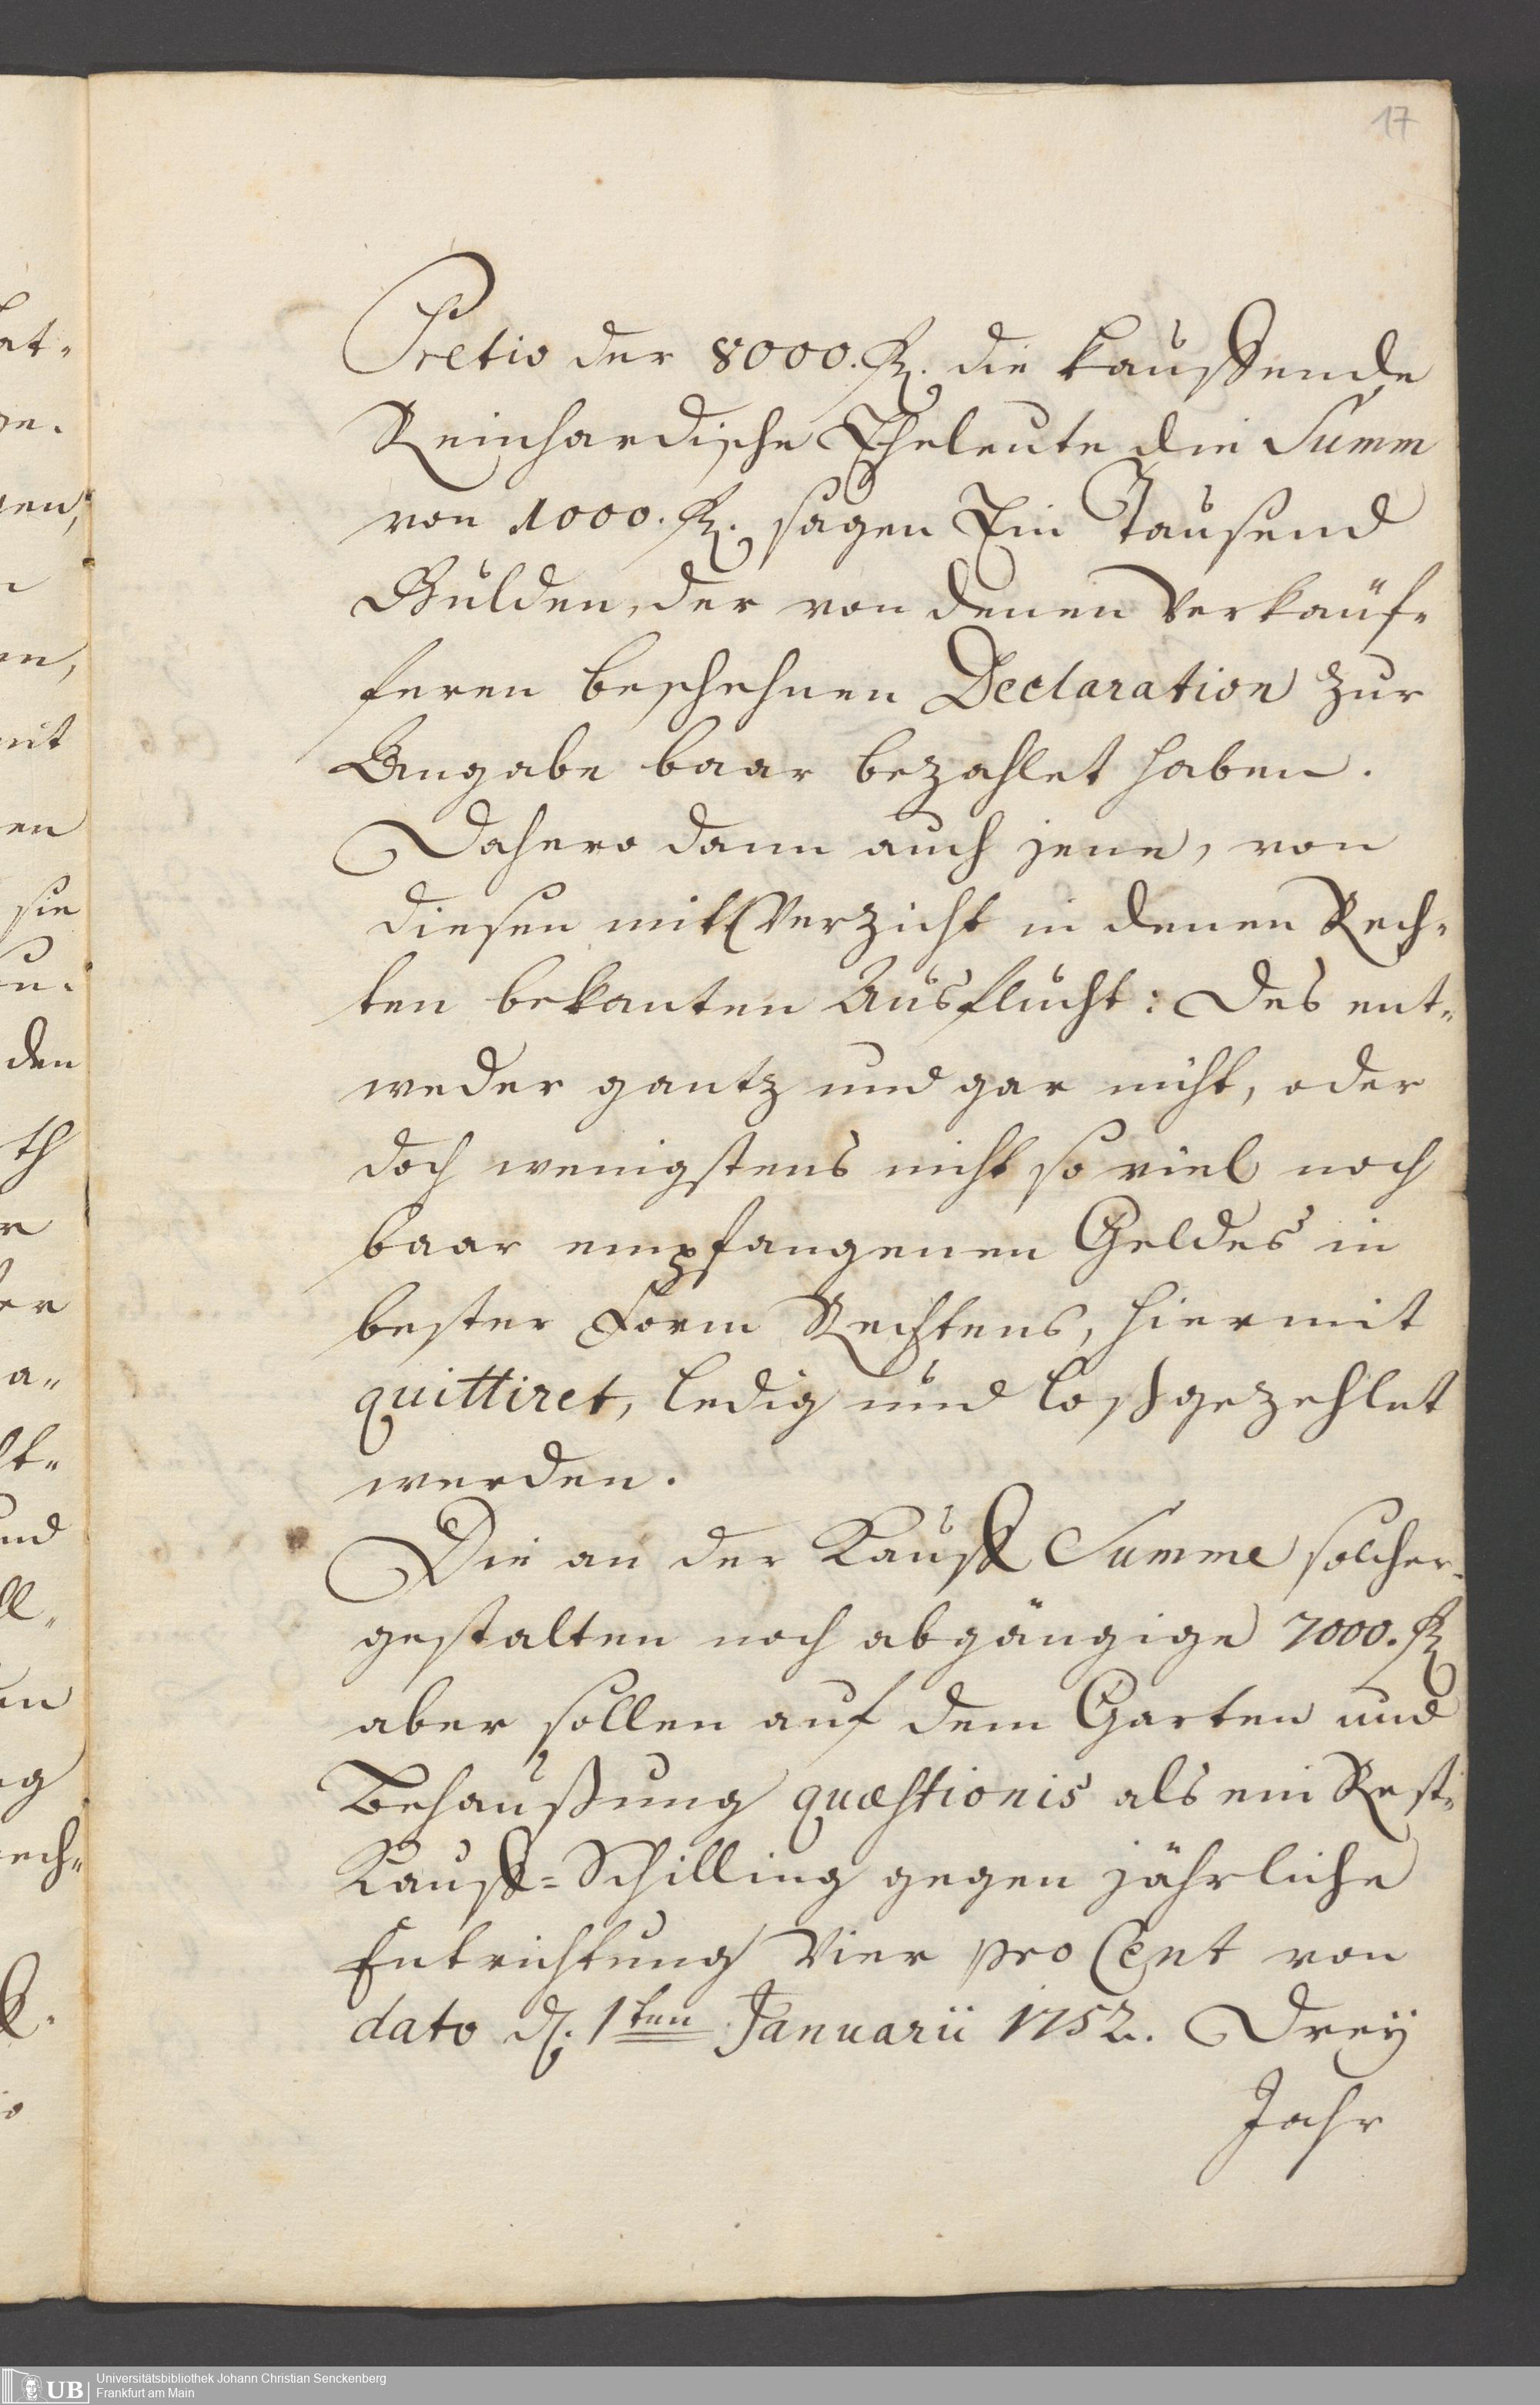 17
Pretio der 8000. fl. die kauffende
Reinhardische Eheleute die Summ
von 1000. fl. sagen Ein Tausend
Gulden, der von denen Verkäuf-
feren beschehenen Declaration zur
Angabe baar bezahlet haben.
Dahero dann auch jene, von
diesen mit Verzicht in denen Rech-
ten bekanten Ausflucht: des ent-
weder gantz und gar nicht, oder
doch wenigstens nicht so viel noch
baar empfangenen Geldes in
bester Form Rechtens, hiermit
quittiret, ledig und loßgezehlet
werden.
Die an der Kauff Summe solcher-
gestalten noch abgängige 7000. fl
aber sollen auf dem Garten und
Behaußung quæstionis als ein Rest-
Kauff-Schilling gegen jährliche
Entrichtung Vier pro Cent von
dato d. 1ten Januarii 1752. Drey
Jahr
UB
Universitätsbibliothek Johann Christian Senckenberg
Frankfurt am Main